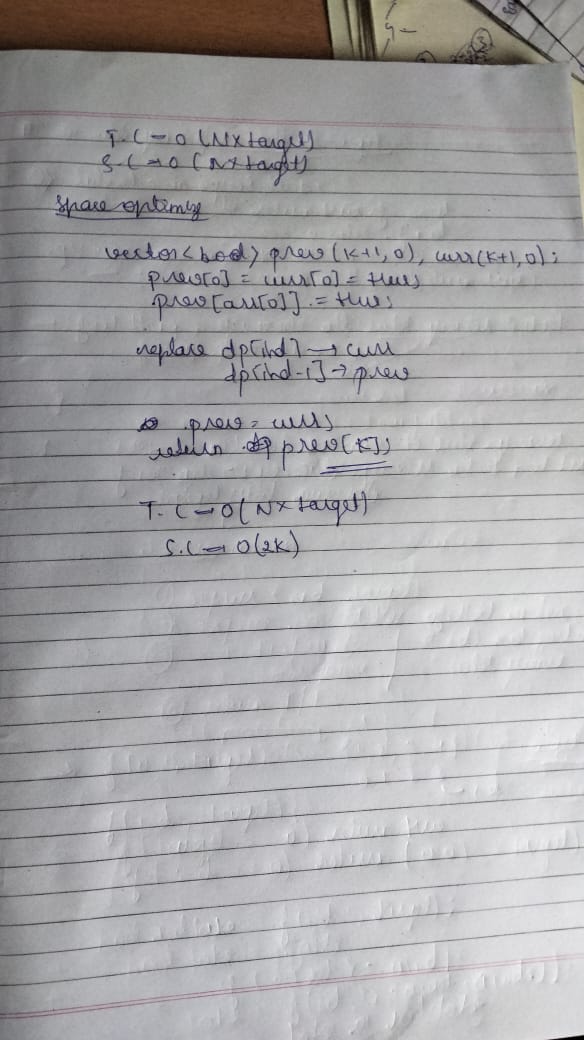 T.C → O (N x target)
S.C → O (N x target)
Space optimize
vector<bool> prev (K+1, 0), curr(K+1, 0);
prev[0] = curr[0] = true;
prev[arr[0]] = true;
replace dp[ind] → curr
dp[ind-1] → prev
prev = curr;
return prev[K];
T.C → O(N x target)
S.C → O(2K)